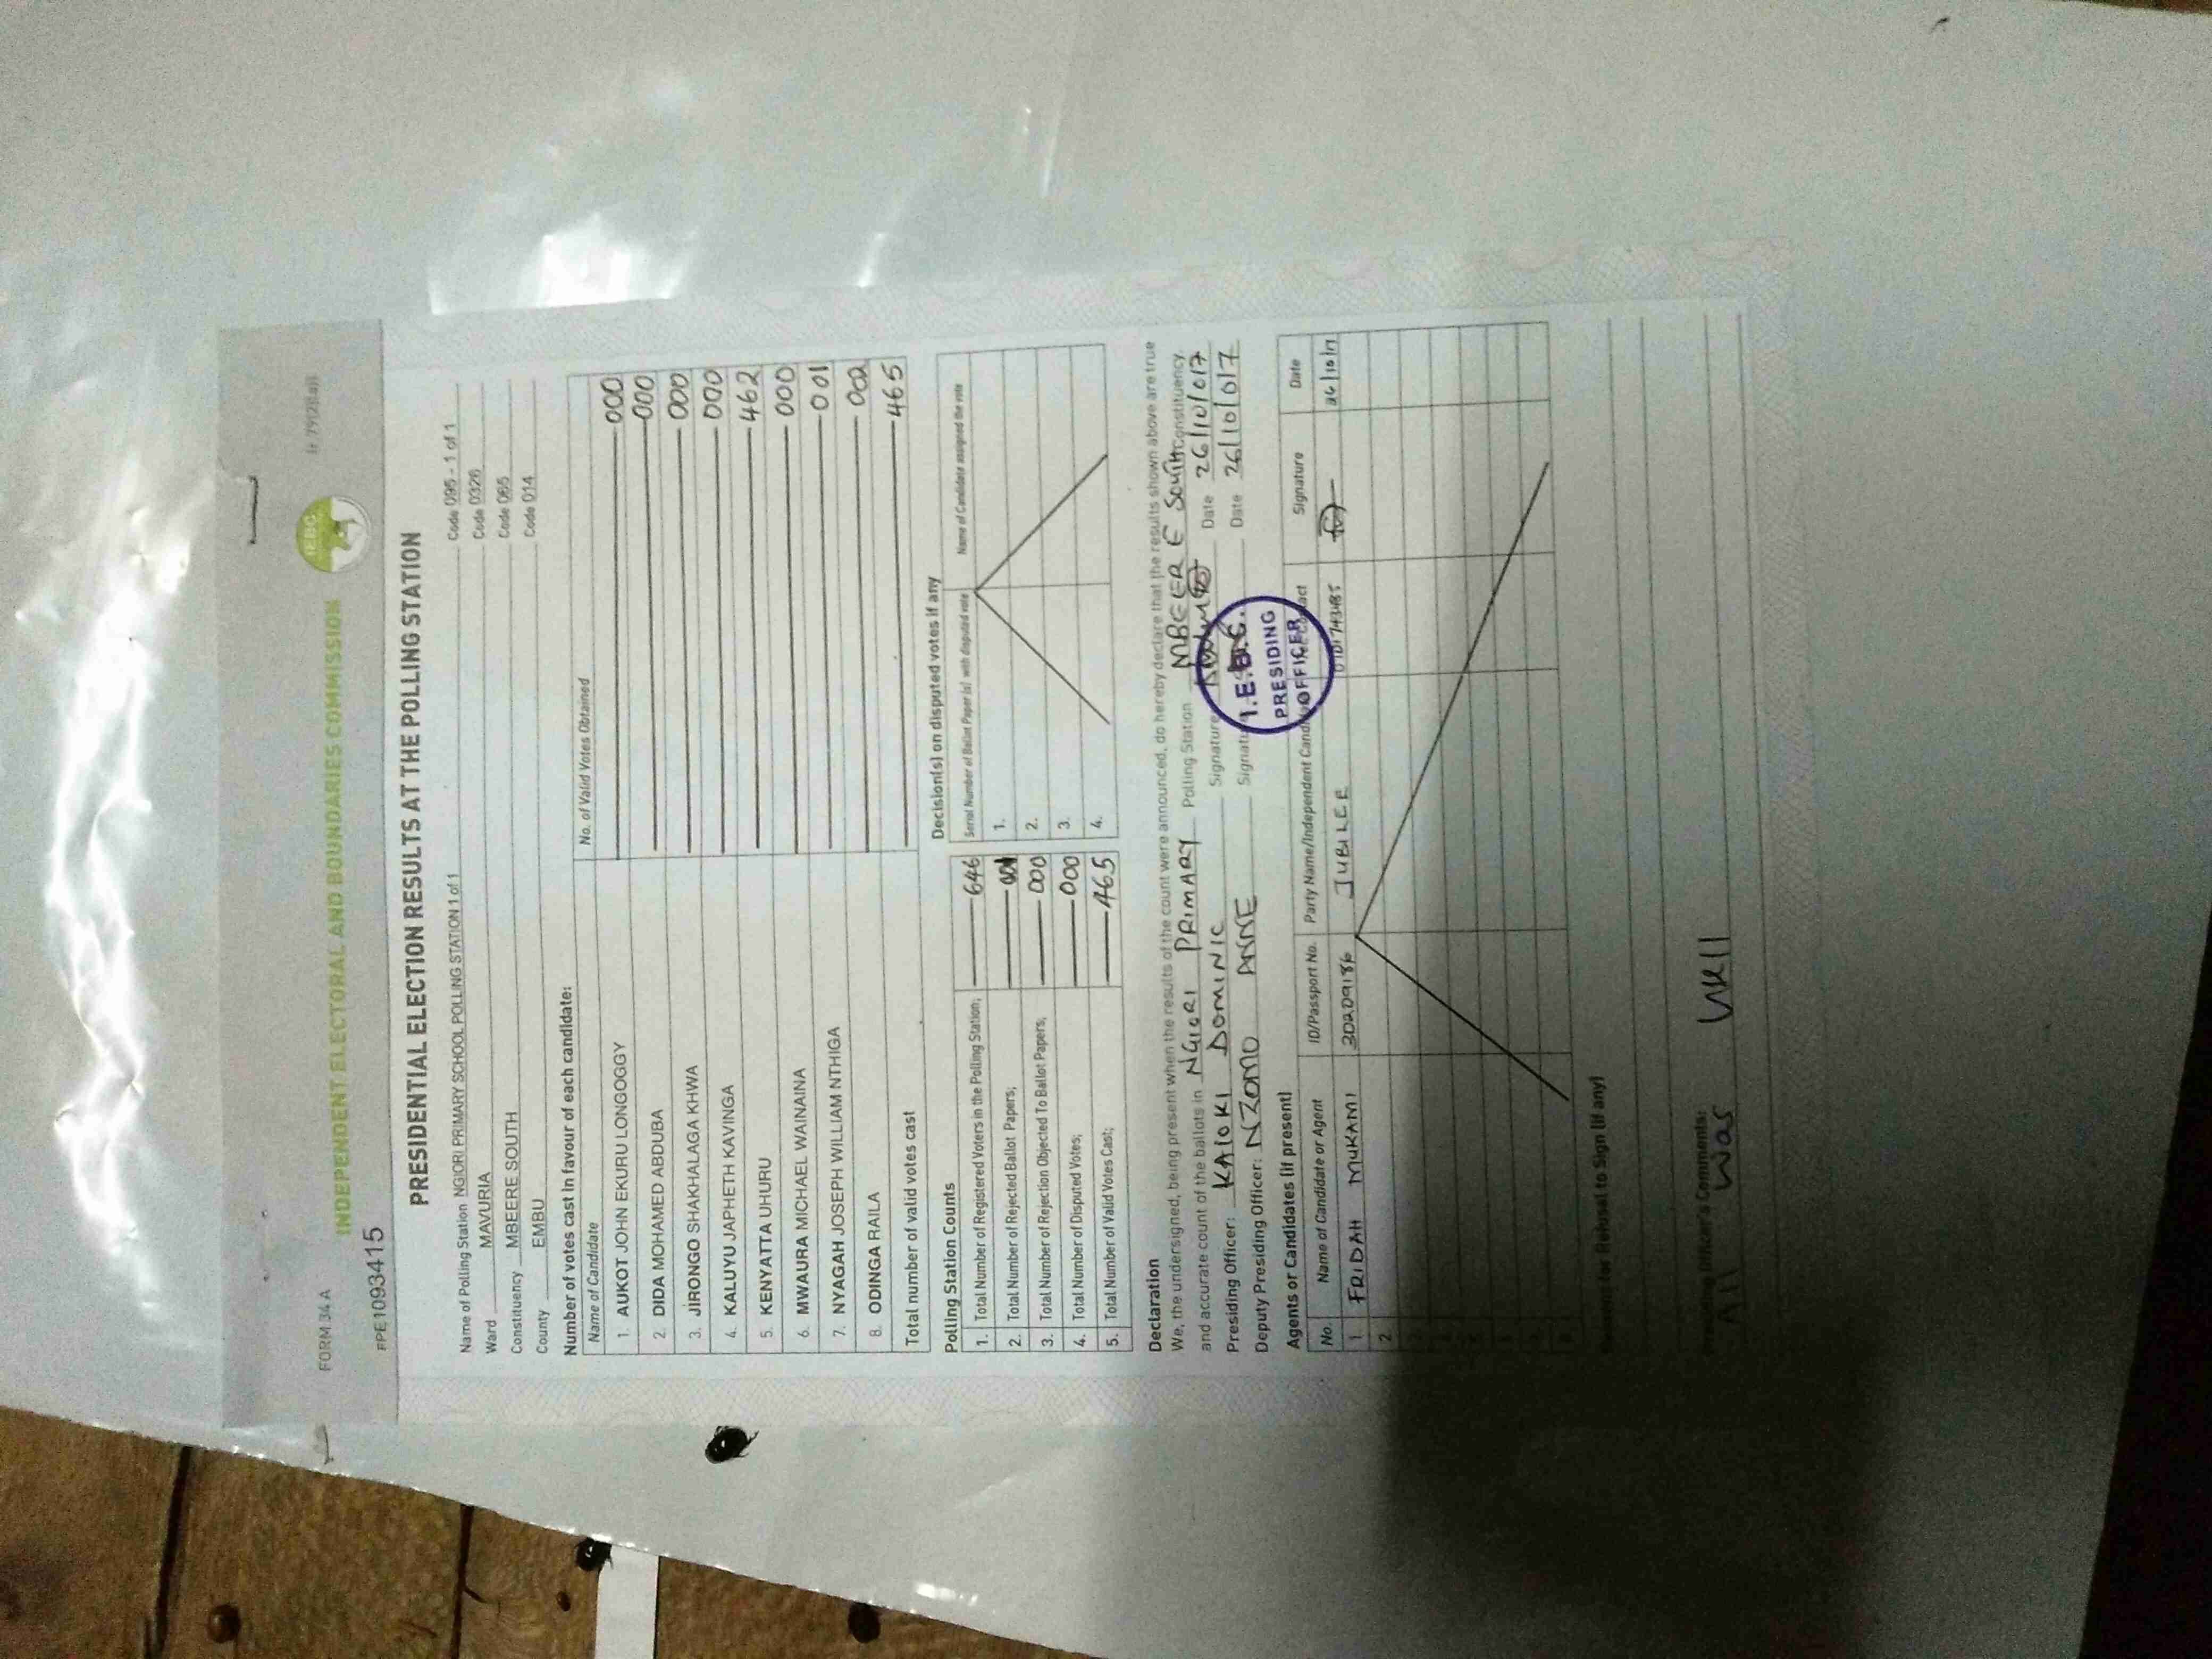 FORM 34 A
INDEPENDENT ELECTORAL AND BOUNDARIES COMMISSION
IEBC
FPE1093415
PRESIDENTIAL ELECTION RESULTS AT THE POLLING STATION
Name of Polling Station NGIORI PRIMARY SCHOOL POLLING STATION 1 of 1 Code 095 - 1 of 1
Ward MAVURIA Code 0326
Constituency MBEERE SOUTH Code 065
County EMBU Code 014
Number of votes cast in favour of each candidate:
Name of Candidate No. of Valid Votes Obtained
1. AUKOT JOHN EKURU LONGOGGY 000
2. DIDA MOHAMED ABDUBA 000
3. JIRONGO SHAKHALAGA KHWA 000
4. KALUYU JAPHETH KAVINGA 000
5. KENYATTA UHURU 462
6. MWAURA MICHAEL WAINAINA 000
7. NYAGAH JOSEPH WILLIAM NTHIGA 001
8. ODINGA RAILA 002
Total number of valid votes cast 465
Polling Station Counts
1. Total Number of Registered Voters in the Polling Station; 646
2. Total Number of Rejected Ballot Papers;
3. Total Number of Rejection Objected To Ballot Papers; 000
4. Total Number of Disputed Votes; 000
5. Total Number of Valid Votes Cast; 465
Decision(s) on disputed votes if any
Serial Number of Ballot Paper (s) with disputed vote Name of Candidate assigned the vote
1.
2.
3.
4.
Declaration
We, the undersigned, being present when the results of the count were announced, do hereby declare that the results shown above are true
and accurate count of the ballots in NGIORI PRIMARY Polling Station MBEERE SOUTH Constituency.
Presiding Officer: KAIOKI DOMINIC Signature Date 26/10/017
Deputy Presiding Officer: NZOMO ANNE Signature Date 26/10/017
I.E.B.C.
PRESIDING
OFFICER
Agents or Candidates (if present)
No. Name of Candidate or Agent ID/Passport No. Party Name/Independent Candidate Contact Signature Date
1. FRIDAH MUKAMI 30209186 JUBILEE 26/10/17
2.
Reason(s) for Refusal to Sign (if any)
Presiding Officer's Comments:
All was well